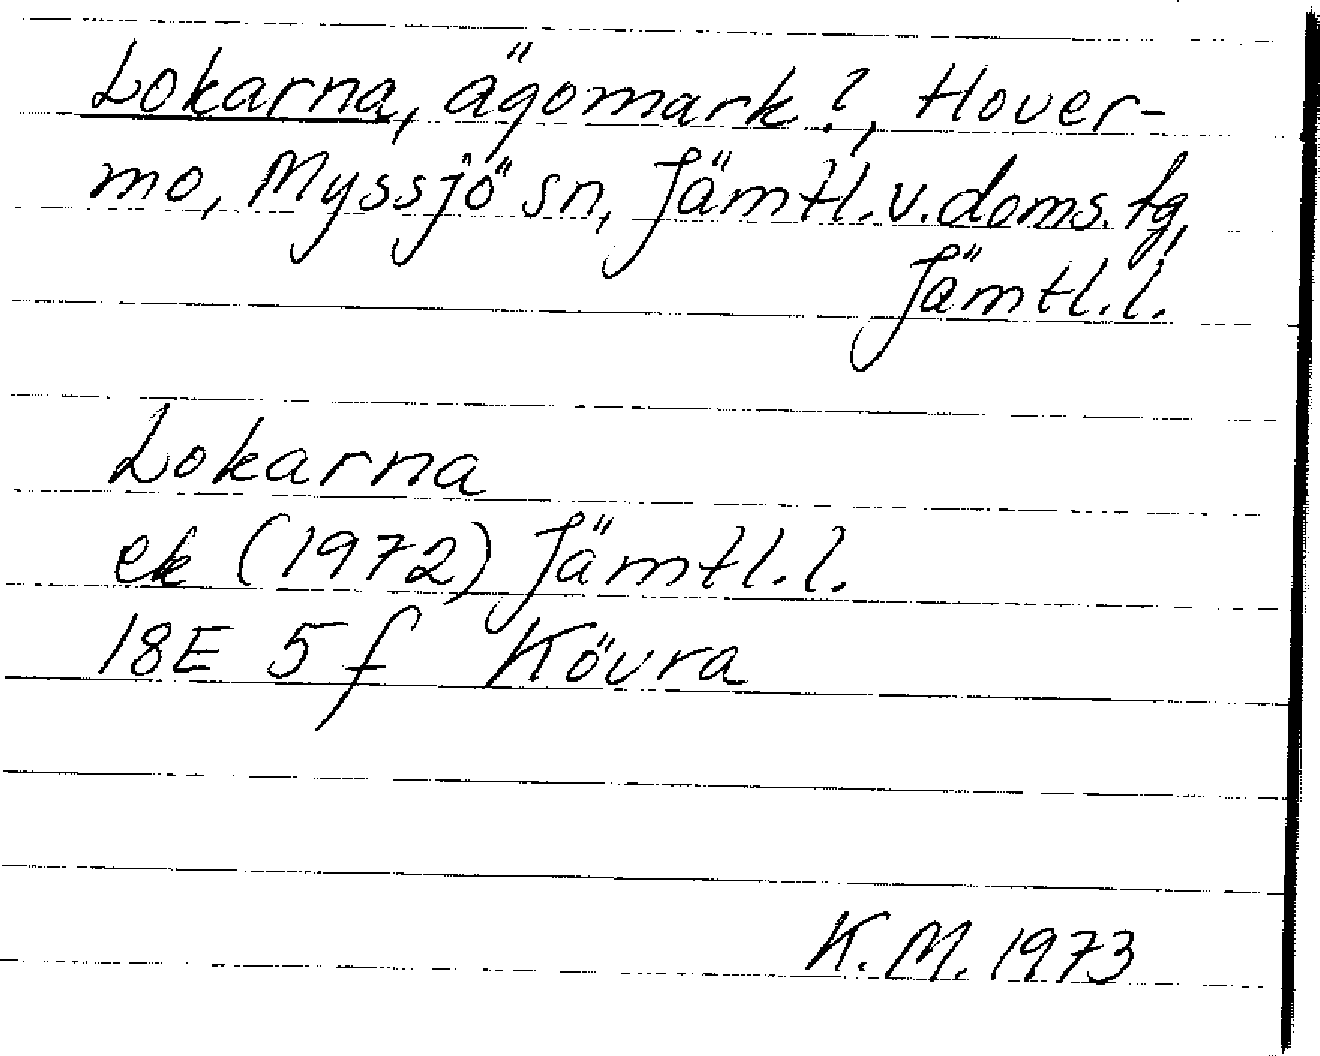 Lokarna, ägomark?, Hover-
mo, Myssjö sn, Jämtl. v. doms. tg,
Jämtl. l.
Lokarna
ek (1972) Jämtl. l.
18E 5f Kövra
K.M. 1973